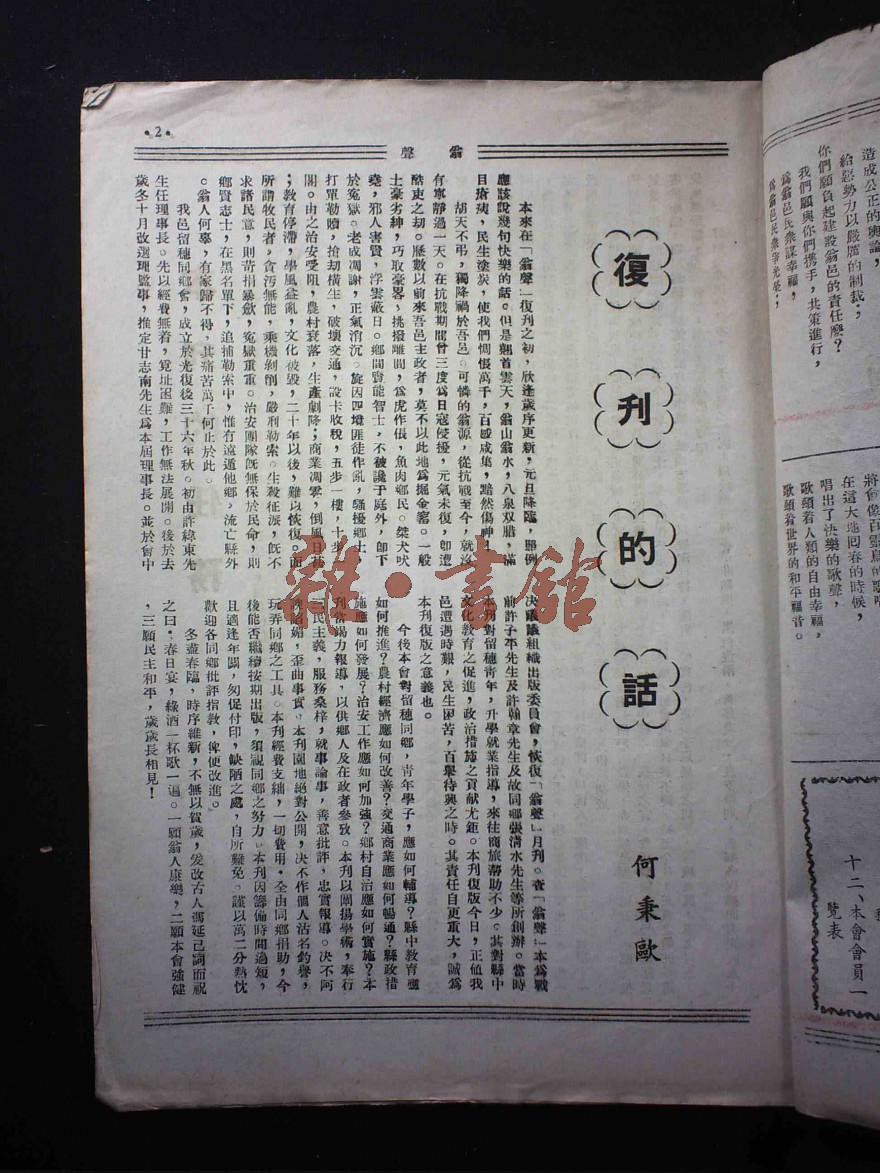 •2•
翁聲
復刊的話
何秉歐
本來在「翁聲」復刊之初，欣逢歲序更新，元旦降臨，照例
應該說幾句快樂的話。但是翹首雲天，翁山翁水，八泉双腊，滿
目瘡痍，民生塗炭，使我們惆悵萬千，百感咸集，黯然傷神！
胡天不弔，獨降禍於吾邑。可憐的翁源，從抗戰至今，就沒
有寧靜過一天。在抗戰期間曾三度為日寇侵擾，元氣未復，卽遭
酷吏之刧。歷數以前來吾邑主政者，莫不以此地為掘金窖。一般
士豪劣紳，巧取豪畧，挑撥離間，為虎作倀，魚肉鄉民。桀犬吠
堯，邪人害賢，浮雲蔽日。鄉間賢能智士，不被讒于庭外，卽下
於冤獄。老成凋謝，正氣消沉。旋因四境匪徒作亂，騷擾鄉土，
打單勒贖，搶刧橫生，破壞交通，設卡收稅，五步一樓，十步一
閣。由之治安受阻，農村衰落，生產劇降；商業凋零，倒風日甚
；教育停滯，學風益亂，文化被毀，二十年以後，難以恢復。而
所謂牧民者，貪汚無能，乘機剝削，嚴刑勒索。生殺征派，旣不
求諸民意，則苛捐暴歛，冤獄重重。治安團隊旣無保於民命，則
鄉賢志士，在黑名單下，追捕勒索中，惟有遠遁他鄉，流亡縣外
。翁人何辜，有家歸不得，其痛苦萬千何止於此。
我邑留穗同鄉會，成立於光復後三十六年秋。初由許綠東先
生任理事長。先以經費無着，覓址困難，工作無法展開。後於去
歲冬十月改選理監事，推定甘志南先生為本屆理事長。並於會中
決議組織出版委員會，恢復「翁聲」月刊。查「翁聲」本為戰
前許子平先生及許翰章先生及故同鄉張清水先生等所創辦。當時
本刊對留穗青年，升學就業指導，來往商旅帮助不少。其對縣中
文化教育之促進，政治措施之貢献尤鉅。本刊復版今日，正值我
邑遭遇時艱，民生困苦，百舉待興之時。其責任自更重大，誠為
本刊復版之意義也。
今後本會對留穗同鄉，青年學子，應如何輔導？縣中教育應
如何推進？農村經濟應如何改善？交通商業應如何暢通？縣政措
施應如何發展？治安工作應如何加強？鄉村自治應如何實施？本
刊當竭力報導，以供鄉人及在政者參攷。本刊以闡揚學術，奉行
三民主義，服務桑梓，就事論事，善意批評，忠實報導。決不阿
諛諂媚，歪曲事實。本刊園地絕對公開，決不作個人沽名釣譽，
玩弄同鄉之工具。本刊經費支絀，一切費用，全由同鄉捐助，今
後能否繼續按期出版，須視同鄉之努力。本刊因籌備時間過短，
且適逢年關，匆促付印，缺陋之處，自所難免。謹以萬二分熱忱
歡迎各同鄉批評指教，俾便改進。
冬盡春臨，時序維新，不無以賀歲，爰改古人馮延己詞而祝
之曰．春日宴，綠酒一杯歌一遍。一願翁人康樂，二願本會強健
，三願民主和平，歲歲長相見！
造成公正的輿論，
給惡勢力以嚴厲的制裁；
你們願負起建設翁邑的責任麼？
我們願與你們携手，共策進行，
為翁邑民衆謀幸福，
為翁邑民衆爭光榮；
將會像百靈鳥的歌唱
在這大地回春的時候，
唱出了快樂的歌聲，
歌頌着人類的自由幸福，
歌頌着世界的和平福音。
十二、本會會員一
覽表
雜·書館